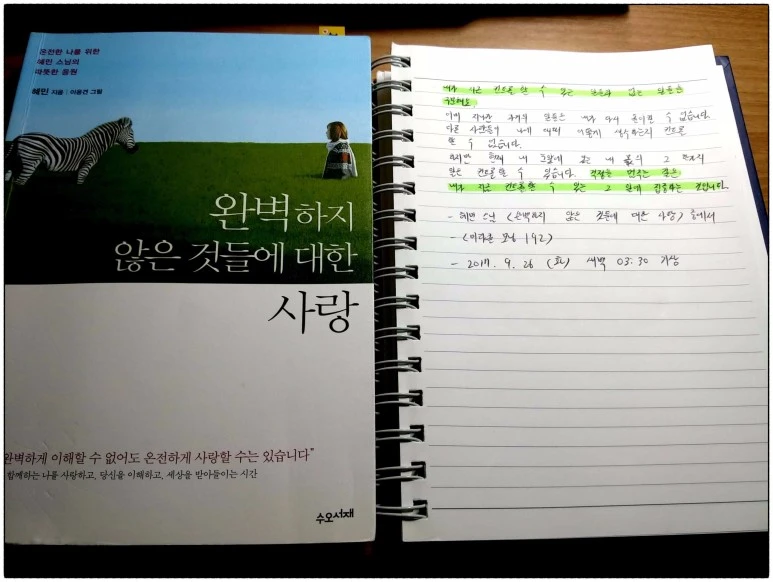 온전한 나를 위한
혜민 스님의
따뜻한 응원
혜민 지음 | 이응견 그림
완벽하지
않은 것들에 대한
사랑
완벽하게 이해할 수 없어도 온전하게 사랑할 수는 있습니다”
함께하는 나를 사랑하고, 당신을 이해하고, 세상을 받아들이는 시간
수오서재
내가 지금 컨트롤 할 수 있는 일들과 없는 일들을
구분해요.
이미 지나간 과거의 일들은 내가 다시 돌이킬 수 없습니다.
다른 사람들이 나에 대해 어떻게 생각하는지 컨트롤
할 수 없습니다.
하지만 현재 내 눈앞에 있는 내 몫의 그 한가지
일은 컨트롤 할 수 있습니다. 걱정을 멈추는 길은
내가 지금 컨트롤 할 수 있는 그 일에 집중하는 것입니다.
- 혜민 스님 <완벽하지 않은 것들에 대한 사랑> 중에서
- <미라클 모닝 192>
- 2017. 9. 26 (화) 새벽 03:30 기상